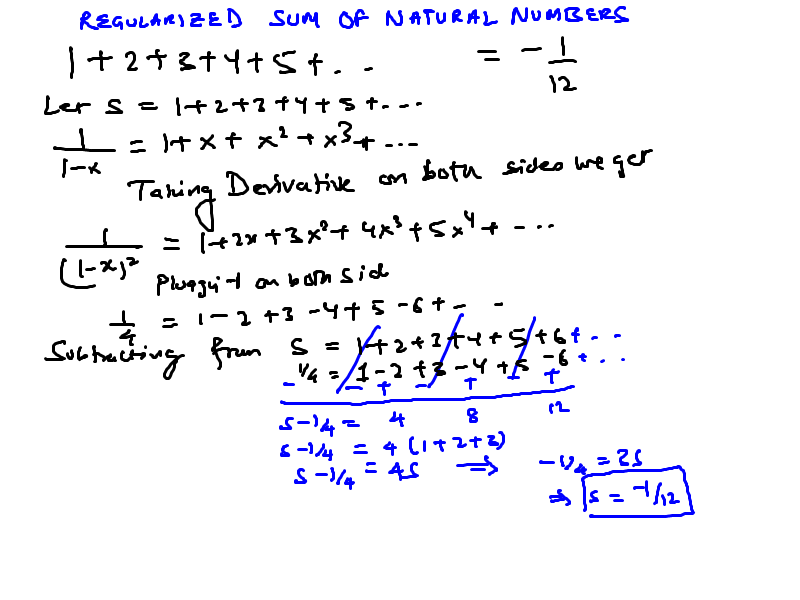 REGULARIZED SUM OF NATURAL NUMBERS
1+2+3+4+5+.. = -1/12
Let S = 1+2+3+4+5+...
1/(1-x) = 1+x+x²+x³+...
Taking Derivative on both sides we get
1/(1-x)² = 1+2x+3x²+4x³+5x⁴+...
Plugging -1 on both side
1/4 = 1-2+3-4+5-6+- -
Subtracting from S = 1+2+3+4+5+6+...
1/4 = 1-2+3-4+5-6+...
- - + - + - +
S-1/4 = 4 8 12
S-1/4 = 4(1+2+3)
S-1/4 = 4S ⇒ -1/4 = 3S
⇒ S = -1/12